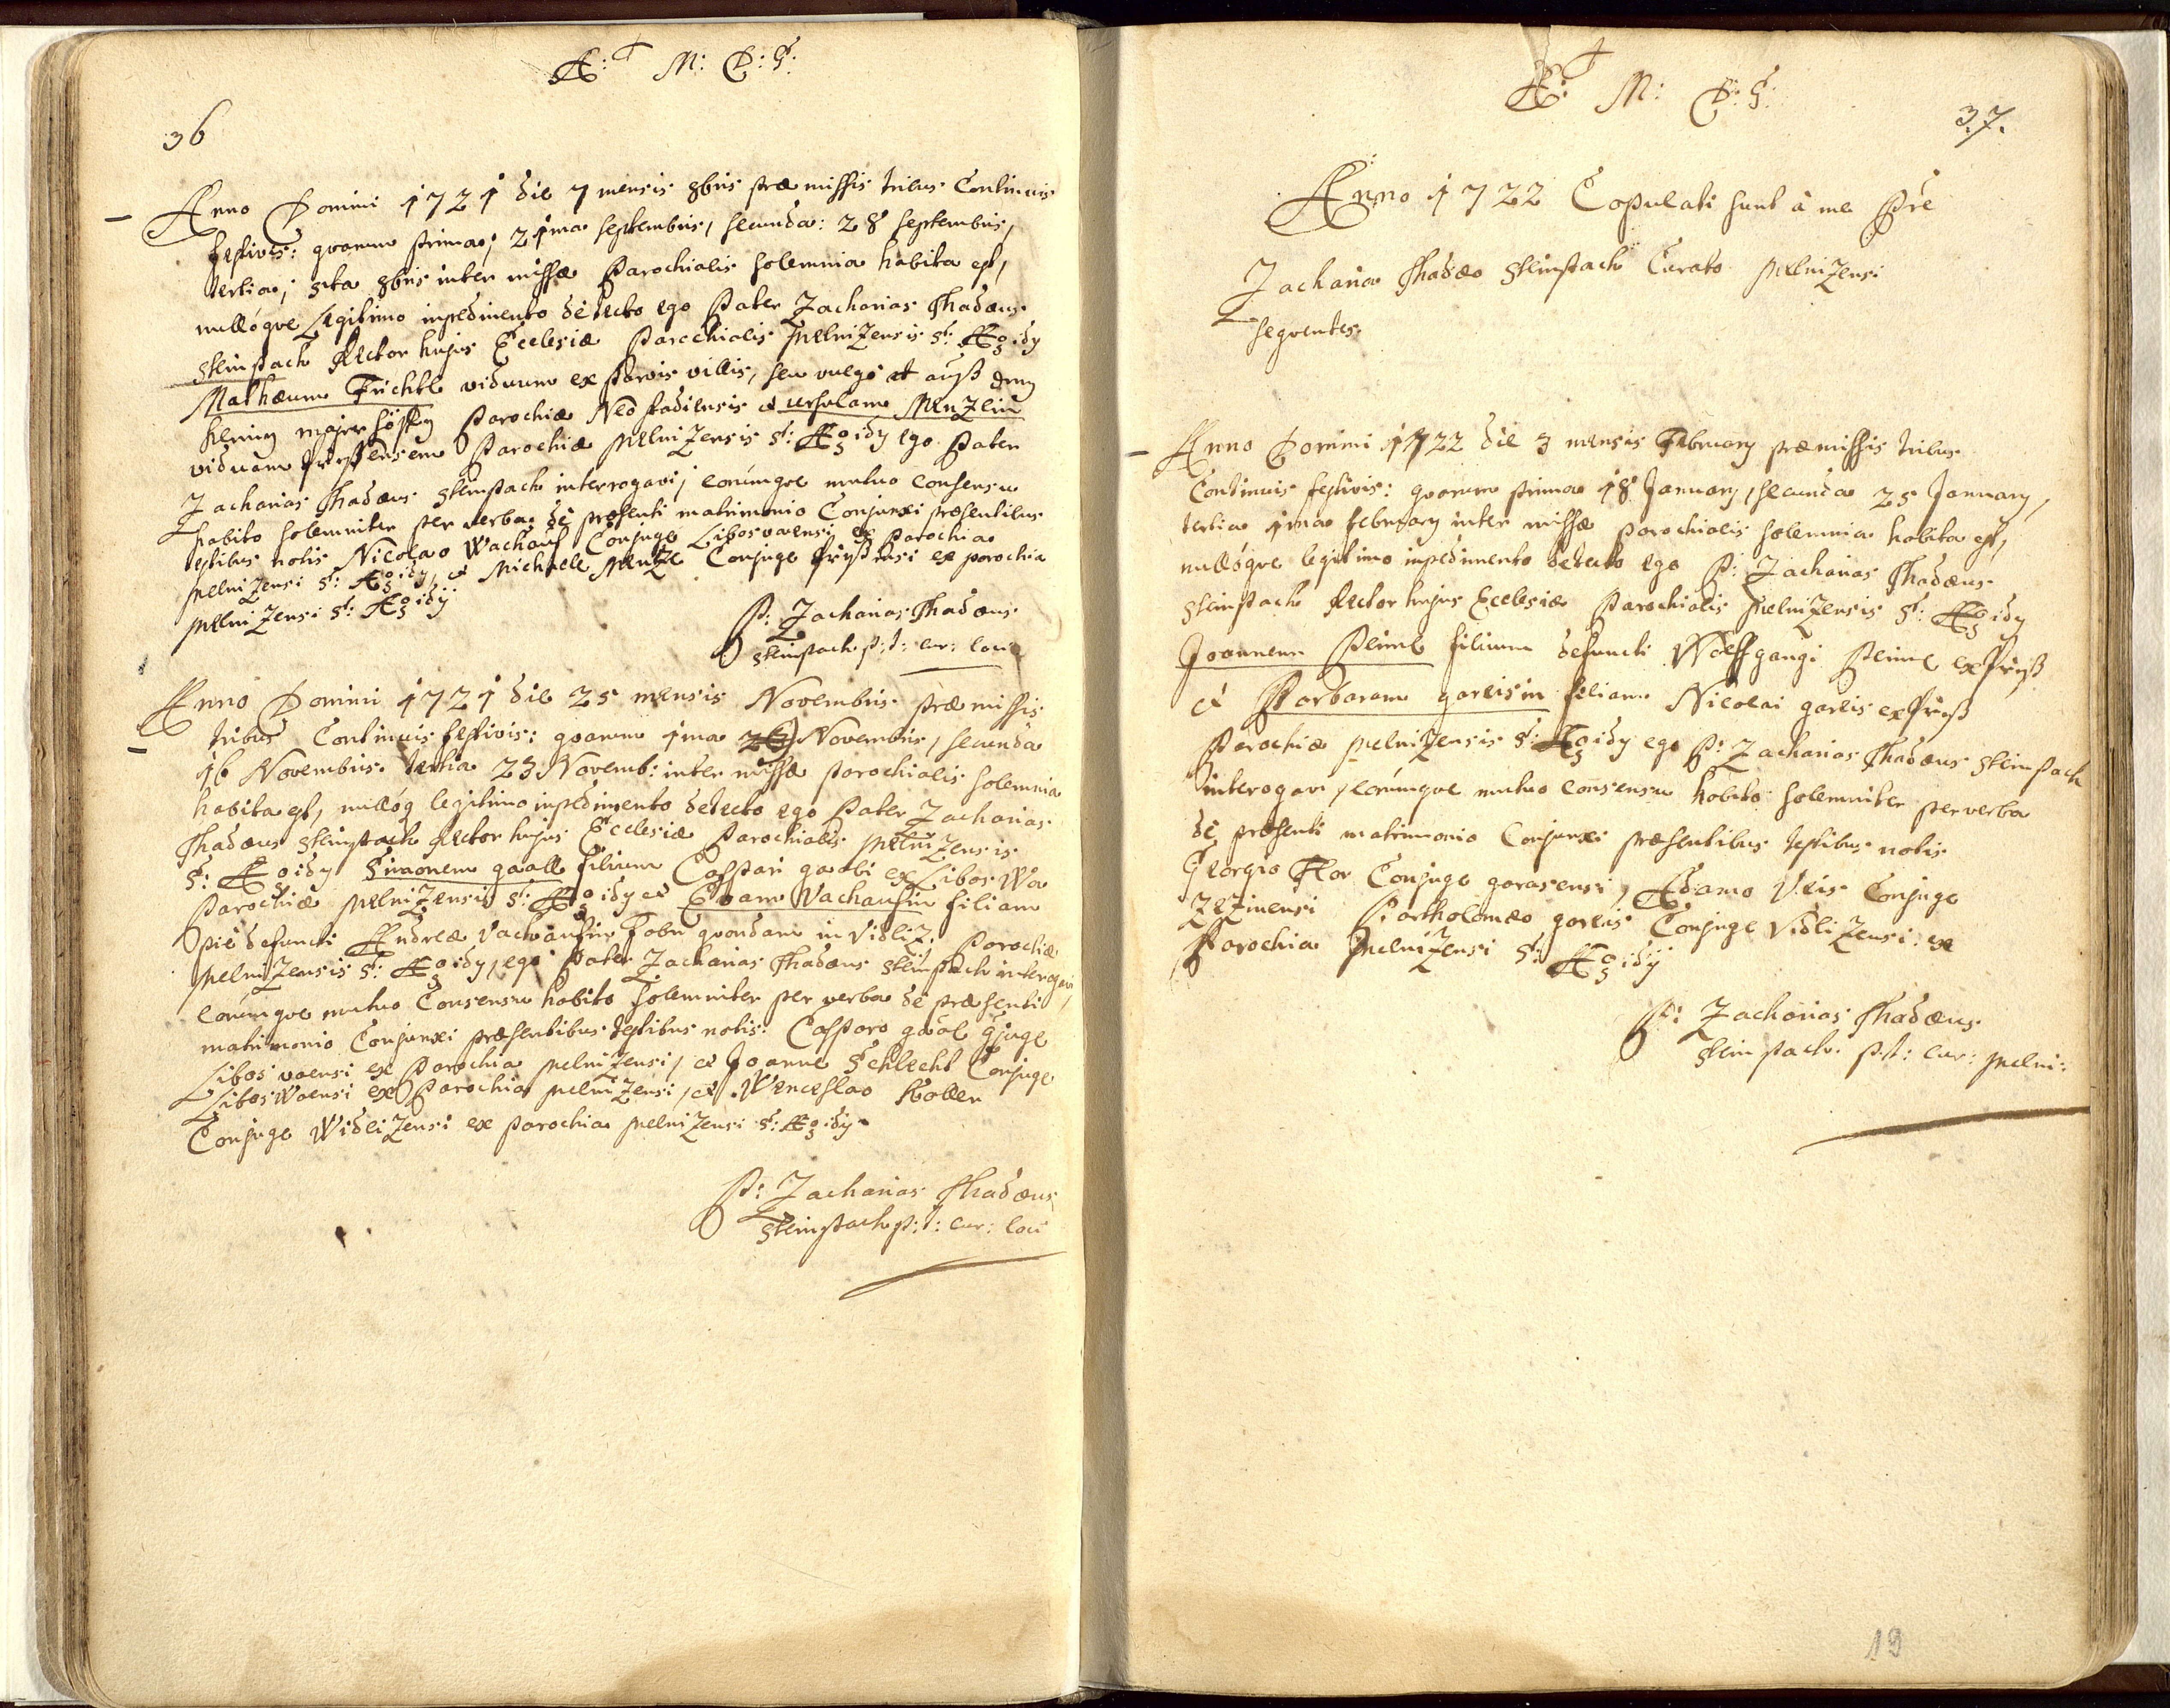 A: M: D: G:
36
Anno Domini 1721 die 7 mensis 8bris præmissis tribus Continuis
festivis: quarum prima; 21ma septembris, secunda: 28 septembris,
tertia; 5ta 8bris inter missæ Parochialis solemnia habita est,
nullóqve Legitimo impedimento detecto ego Pater Zacharias Thadæus
Steinpach Rector hujus Ecclesiæ Parochialis MelniZensis St: Ægidy
Mathæum Frichtl viduum ex parvis villis, seu vulgo auß den
kleinen majer höffen Parochiæ Neostadiensis et Ursulam MenZlin
viduam Parochiæ MelniZensis St: Ægidy ego Pater
Zacharias Thadæus Steinpach interrogavi, eorúmqve mutuo consensu
habito solemniter per verba de præsenti matrimonio Conjunxi præsentibus
testibus notis Nicolao Wachauf Conjuge Liboswaensi ex Parochia
MelniZensi St: Ægidy, et Michaele MenZl Conjuge ex parochia
MelniZensi St: Ægidÿ
P: Zacharias Thadæus
Steinpach p: t: cur: loci
Anno Domini 1721 die 25 mensis Novembris præmissis
tribus Continuis festivis: quarum 1ma Novembris, secunda
16 Novembris tertia 23 Novemb: inter missæ parochialis solemnia
habita est, nullóq legitimo impedimento detecto ego Pater Zacharias
Thadæus Steinpach Rector hujus Ecclesiæ Parochialis MelniZensis
St: Ægidy Simonem gaall filium Caspari gaabl ex Liboswa
Parochiæ MelniZensis St: Ægidy et Evam Vachaufin filiam
piè defuncti Andreæ Vachaufin fabri quondam in VidliZ Parochiæ
MelniZensis St: Ægidy, ego Pater Zacharias Thadæus Steinpach interogavi,
eorúmqve mutuo Consensu habito solemniter per verba de præsenti
matrimonio Conjunxi præsentibus testibus notis: Casparo gaal Cjuge
Libosvaensi ex Parochia MelniZensi, et Joanne Schlecht Conjuge
LibosWaensi ex Parochia MelniZensi, et Wenceslao Koller
Conjuge WidliZensi ex parochia MelniZensi St: Ægidy
P: Zacharias Thadæus
Steinpach p: t: cur: loci
A: M: D: G:
37.
Anno 1722 Copulati sunt à me Pre
Zacharia Thadæo Steinpach Curato MelniZensi
seqventes
Anno Domini 1722 die 3 mensis February præmissis tribus
Continuis festivis: quarum prima 18 January, secunda 25 January,
tertia 1ma february inter missæ parochialis solemnia habita est,
nullóqve legitimo impedimento detecto ego P: Zacharias Thadæus
Steinpach Rector hujus Ecclesiæ Parochialis MelniZensis St: Ægidy
Joannem Peiml filium defuncti Wolffgangi Peiml ex
et Barbaram garlisin filiam Nicolai garlis ex
Parochiæ MelniZensis St: Ægidy ego P: Zacharias Thadæus Steinpach
interogavi, eorúmqve mutuo consensu habito solemniter per verba
de præsenti matrimonio Conjunxi præsentibus testibus notis
Georgio Flor Conjuge garasensi, Adamo Veis Conjuge
ZeZinensi Bartholomæo garlis Conjuge VidliZensi: ex
Parochia MelniZensi St: Ægidÿ
P: Zacharias Thadæus
Steinpach. p: t: cur: Melni:
19